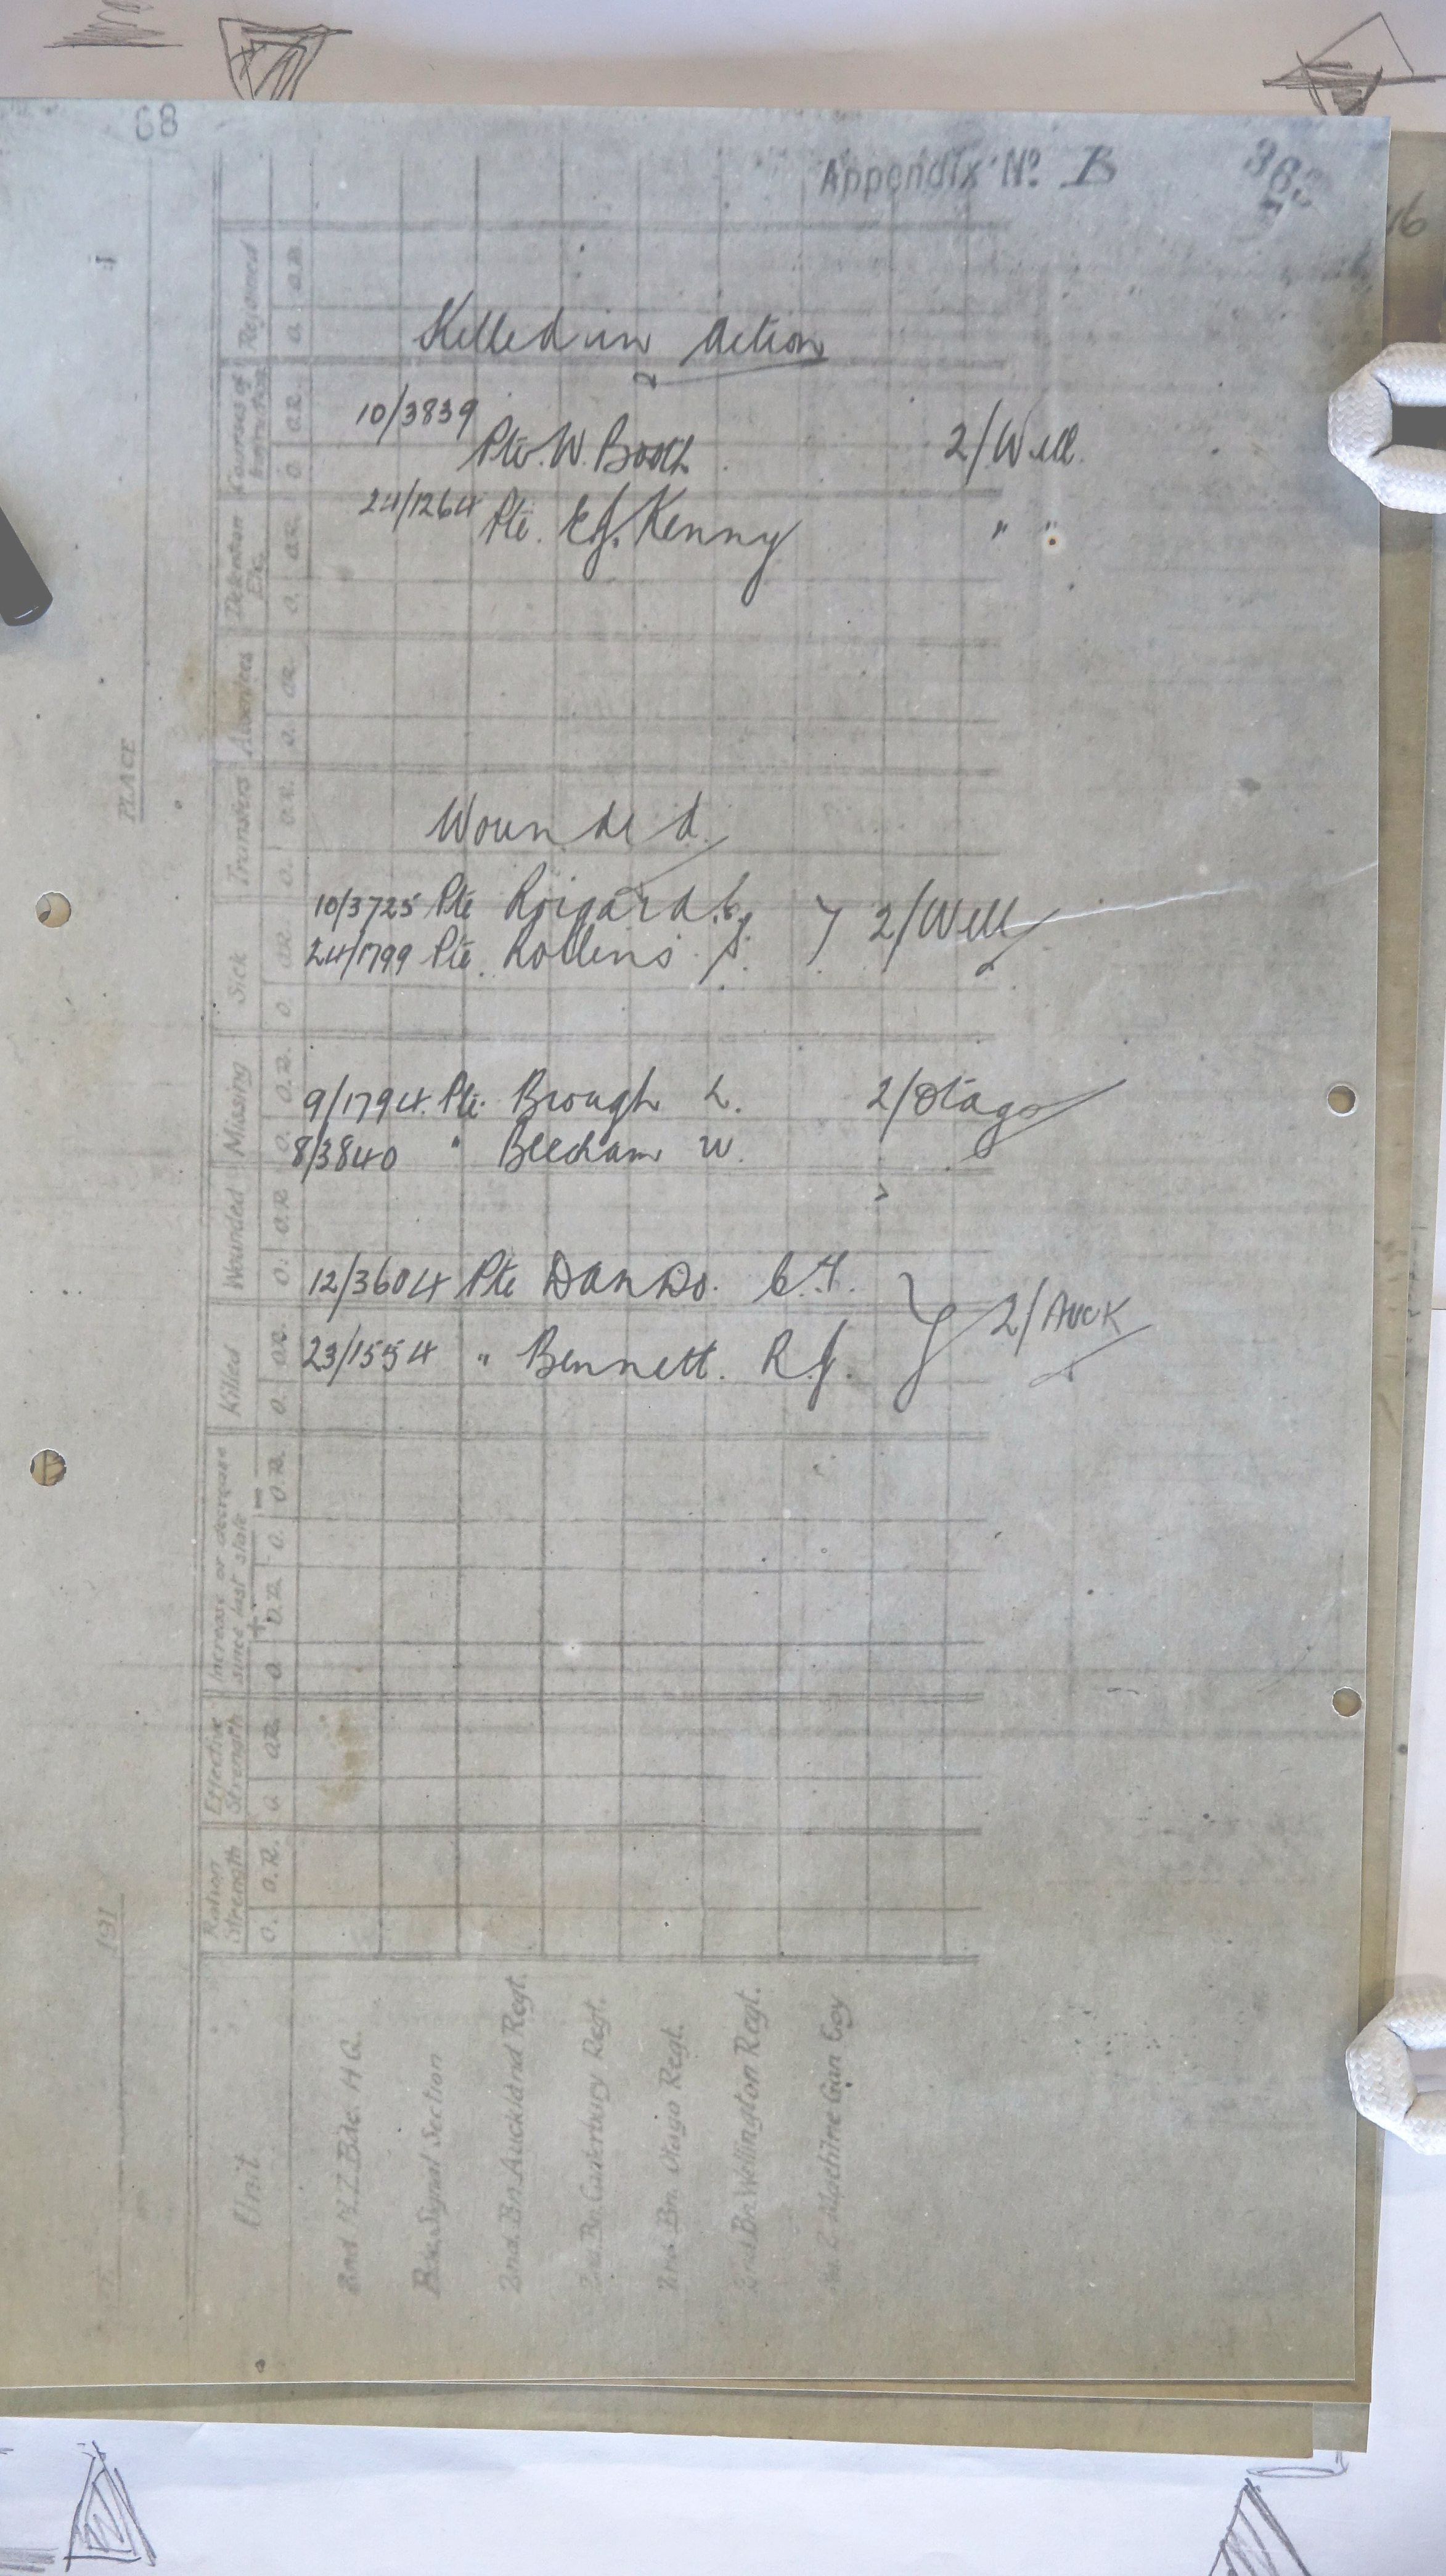 68
Appendix No. B
Killed in Action
10/3839 Pte. W. Booth. 2/Well.
24/1264 Pte. E.J. Kenny " "
Wounded.
10/3725 Pte Roigard. C. } 2/Well
24/1799 Pte. Rollins J.
9/1794. Pte. Brough L. 2/Otago
8/3840 " Beecham W.
12/3604 Pte DANDO. C.T. } 2/AUCK
23/1554 " Bennett. R.J.
PLACE
191
Unit
Ration Strength
Effective Strength
Increase or decrease since last state
+ -
Killed
Wounded
Missing
Sick
Transfers
Absentees
Detention Etc.
Courses of Instruction
Rejoined
O. O.R. O. O.R. O. O.R. O. O.R. O. O.R. O. O.R. O. O.R. O. O.R. O. O.R. O. O.R. O. O.R. O. O.R. O. O.R.
2nd N.Z. Bde. H.Q.
Bde. Signal Section
2nd. Bn. Auckland Regt.
2nd. Bn. Canterbury Regt.
2nd. Bn. Otago Regt.
2nd. Bn. Wellington Regt.
No. 2. Machine Gun Coy